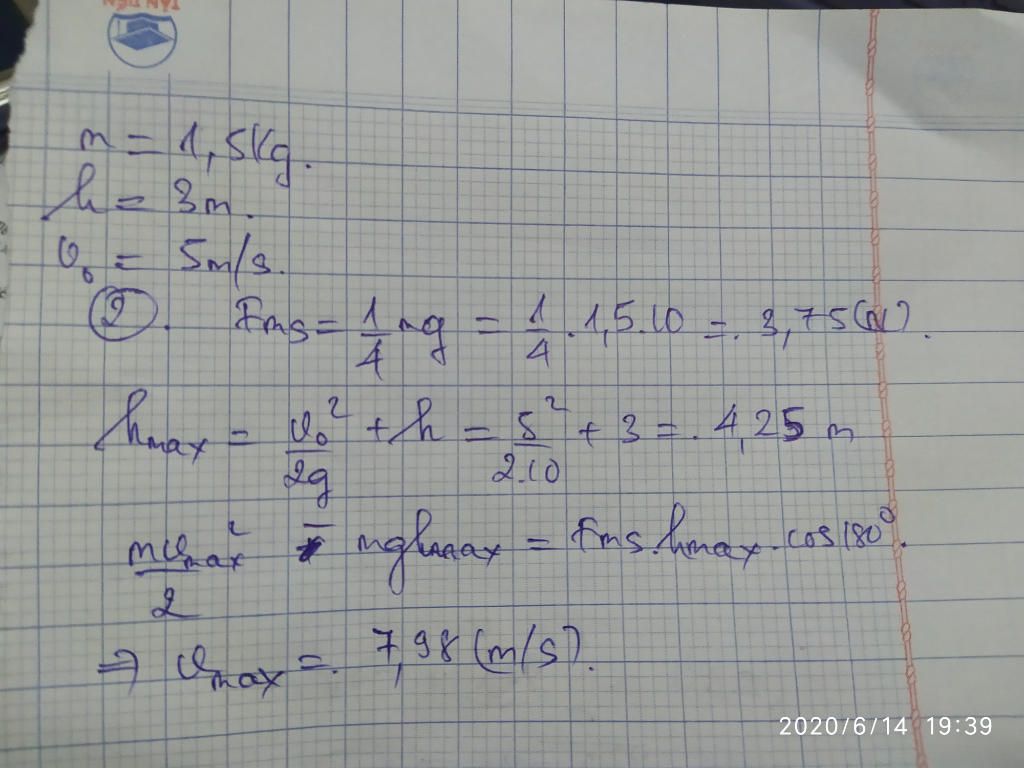 TÂN TIẾN
m = 1,5Kg.
h = 3m.
v₀ = 5m/s.
②. Fms = 1/4 mg = 1/4 . 1,5.10 = . 3,75(N).
hmax = v₀²/2g + h = 5²/2.10 + 3 = . 4,25 m
mvmax²/2 - mghmax = Fms.hmax.cos180°.
⇒ vmax = . 7,98 (m/s).
2020/6/14 19:39